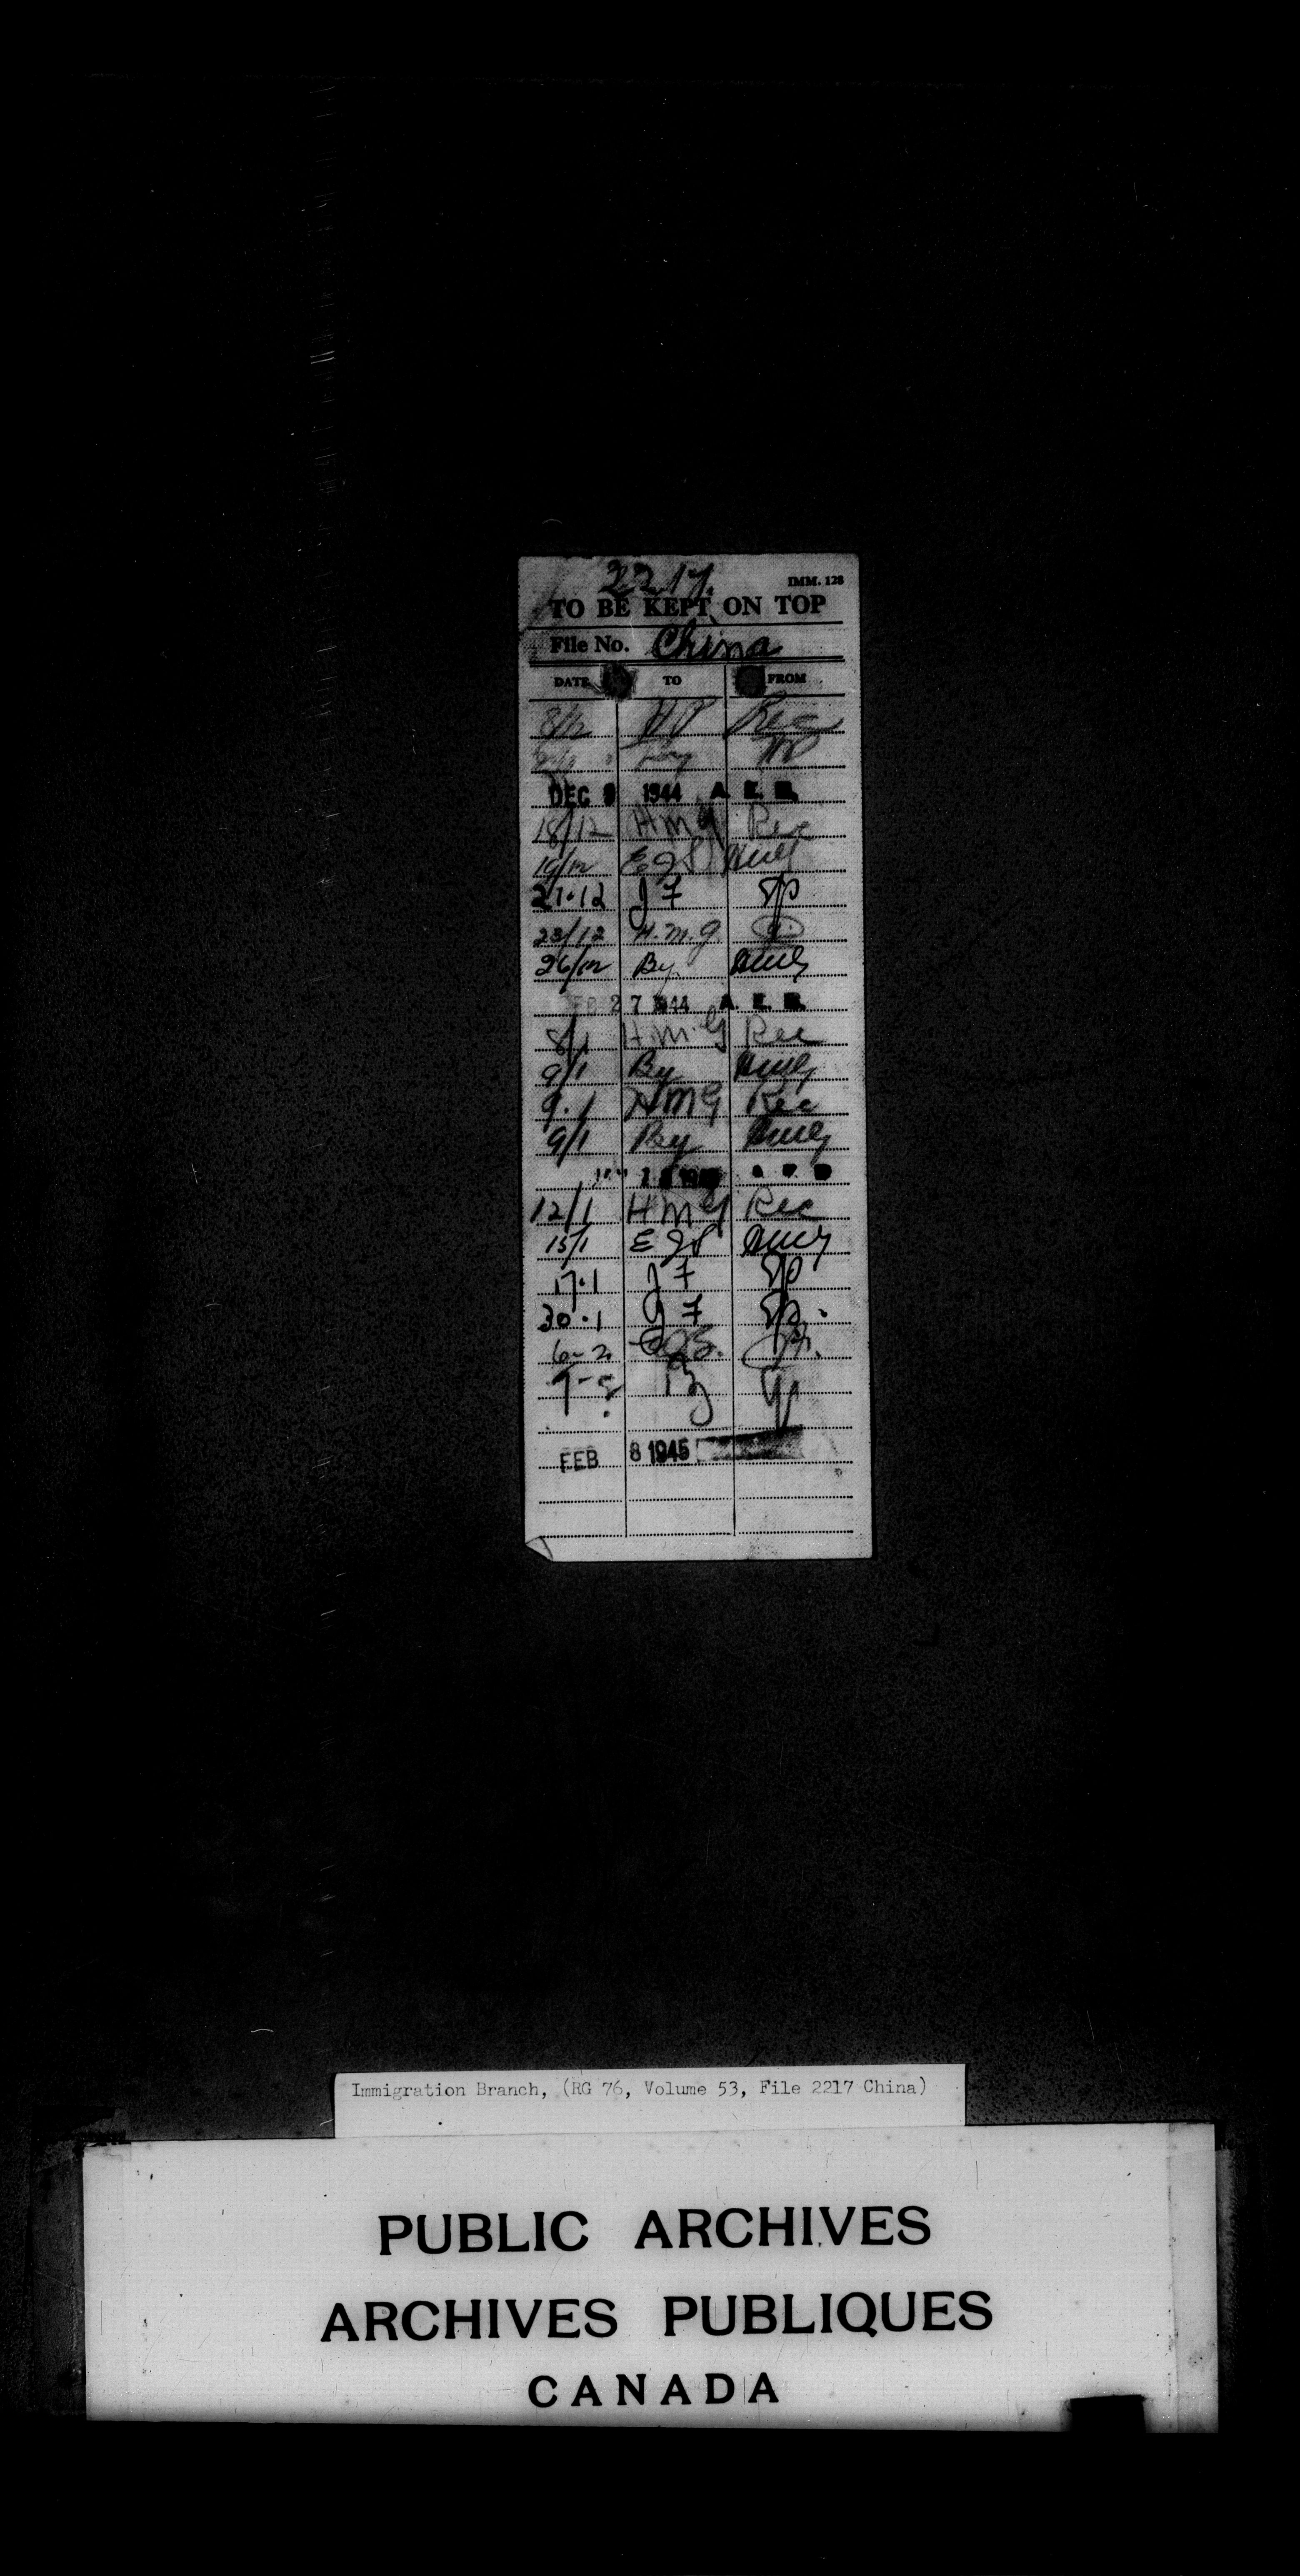 2217.
IMM. 128
TO BE KEPT ON TOP
File No. China
DATE TO FROM
8/12 HP Rec
DEC 9 1944 A. E. B.
18/12 HMG Rec
19/12 EJS HMG
21.12 JF
23/12 H.M.G.
26/12 By HMG
27 1944 A. E. B.
8/1 H.M.G Rec
9/1 By HMG
9.1 HMG Rec
9/1 By HMG
12/1 HMG Rec
15/1 EJS HMG
17.1 JF
30.1 JF
6-2
FEB 8 1945
Immigration Branch, (RG 76, Volume 53, File 2217 China)
PUBLIC ARCHIVES
ARCHIVES PUBLIQUES
CANADA